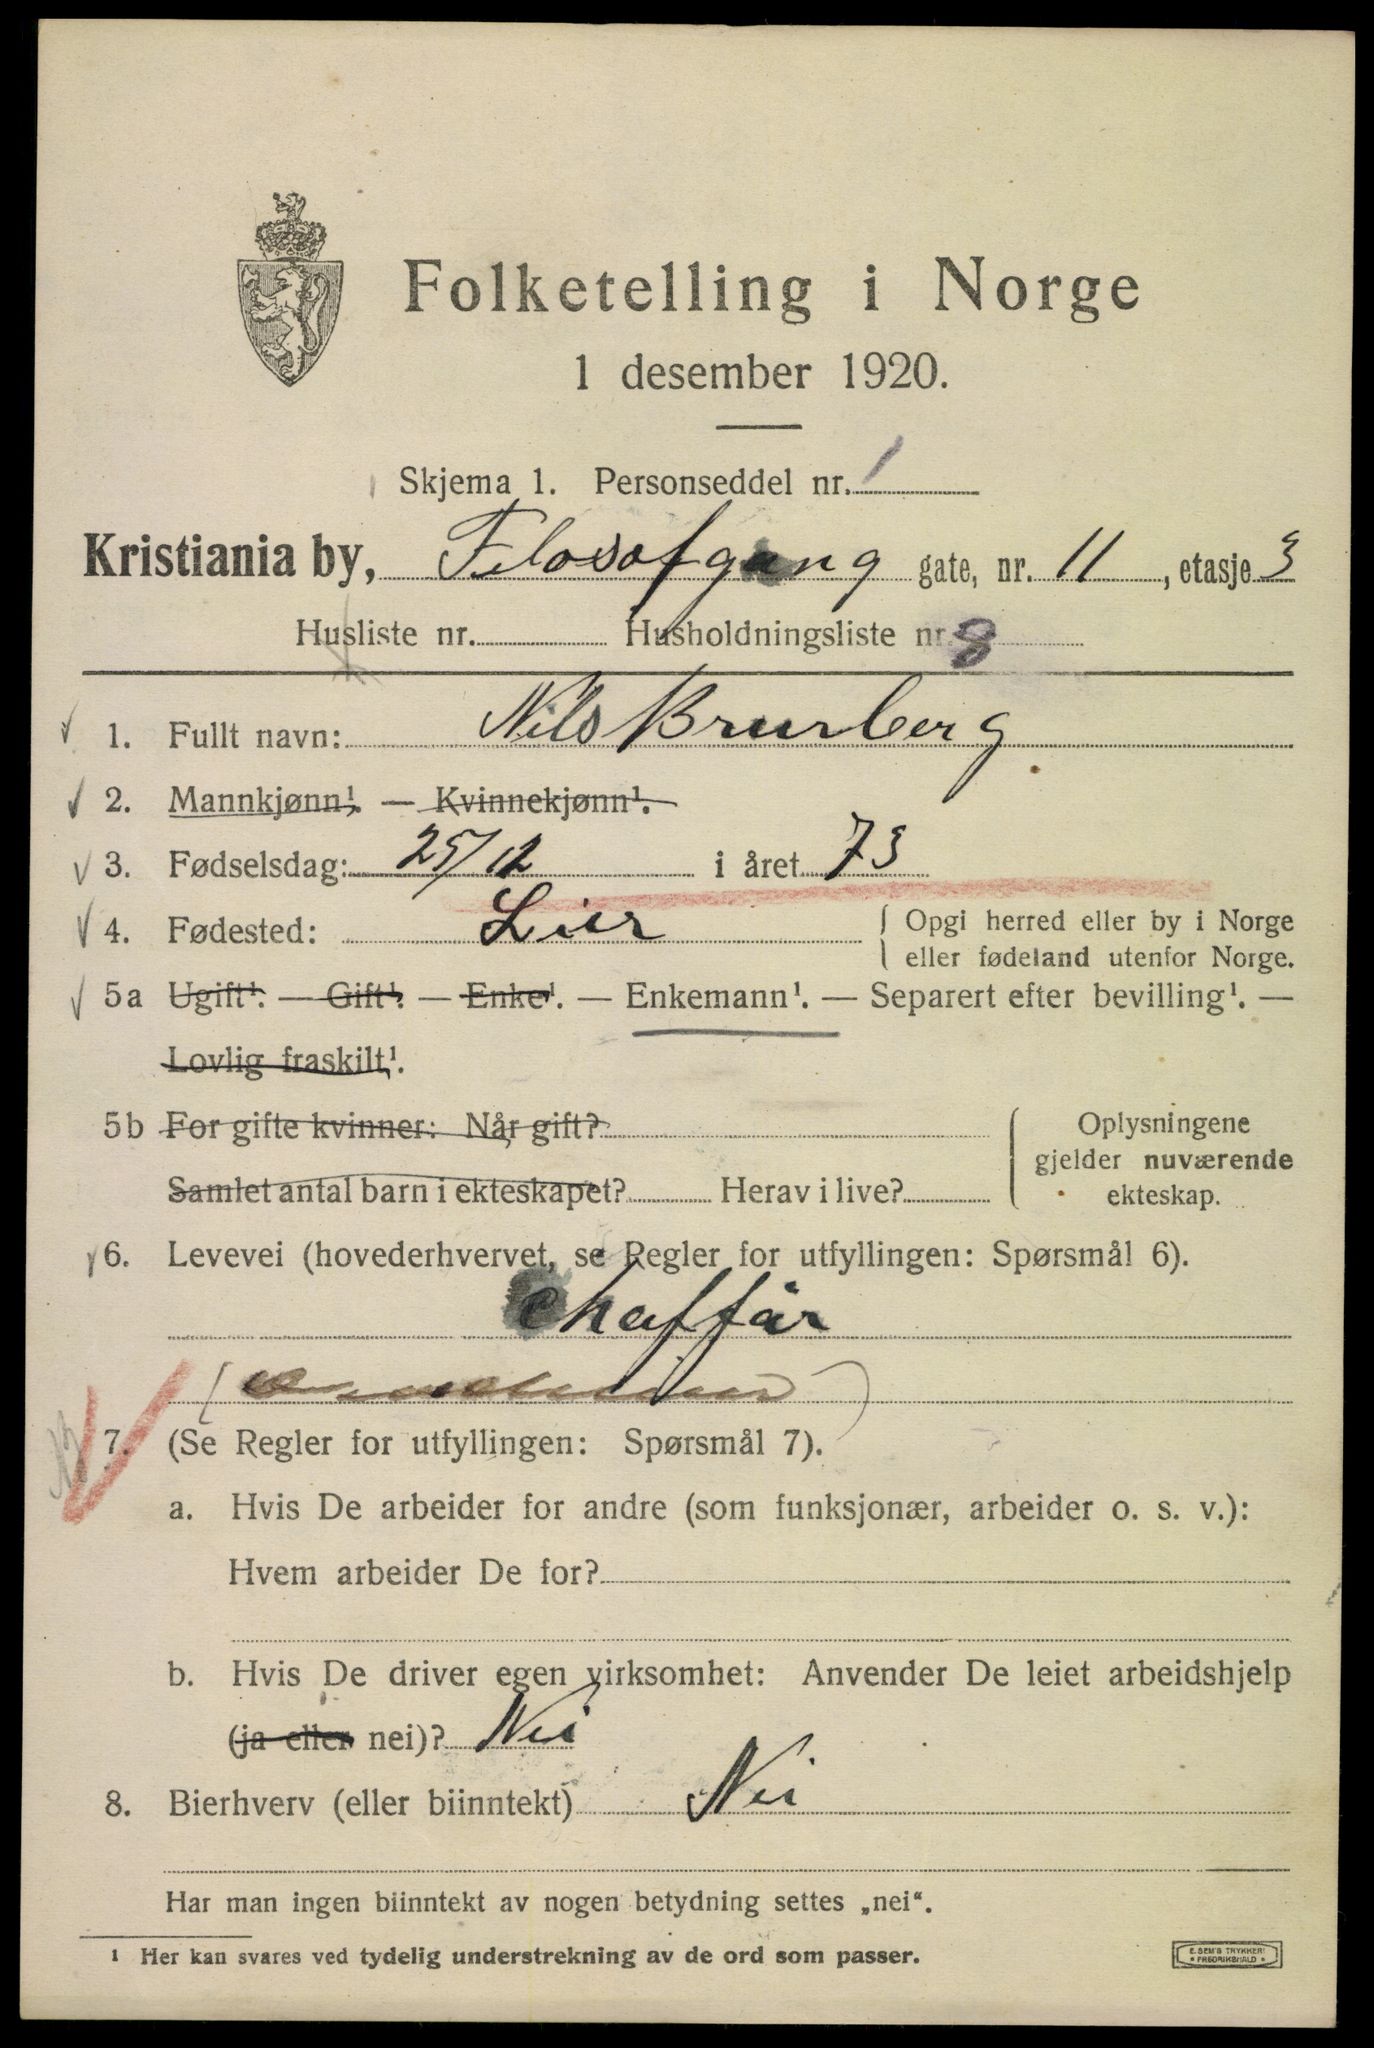 Folketelling i Norge
1 desember 1920.
Skjema 1. Personseddel nr. 1
Kristiania by, Filosofgang gate, nr. 11, etasje 3
Husliste nr. Husholdningsliste nr. 8
1. Fullt navn: Nils Brurberg
2. Mannkjønn¹. — Kvinnekjønn¹.
3. Fødselsdag: 25/12 i året 73
4. Fødested: Lier { Opgi herred eller by i Norge
eller fødeland utenfor Norge.
5a Ugift¹. — Gift¹. — Enke¹. — Enkemann¹. — Separert efter bevilling¹. —
Lovlig fraskilt¹.
5b For gifte kvinner: Når gift? { Oplysningene
gjelder nuværende
Samlet antal barn i ekteskapet? Herav i live? ekteskap.
6. Levevei (hovederhvervet, se Regler for utfyllingen: Spørsmål 6).
Chaffør
7. (Se Regler for utfyllingen: Spørsmål 7).
a. Hvis De arbeider for andre (som funksjonær, arbeider o. s. v.):
Hvem arbeider De for?
b. Hvis De driver egen virksomhet: Anvender De leiet arbeidshjelp
(ja eller nei)? Nei
8. Bierhverv (eller biinntekt) Nei
Har man ingen biinntekt av nogen betydning settes „nei“.
¹ Her kan svares ved tydelig understrekning av de ord som passer.
E. SEM'S TRYKKERI
• FREDRIKSHALD •